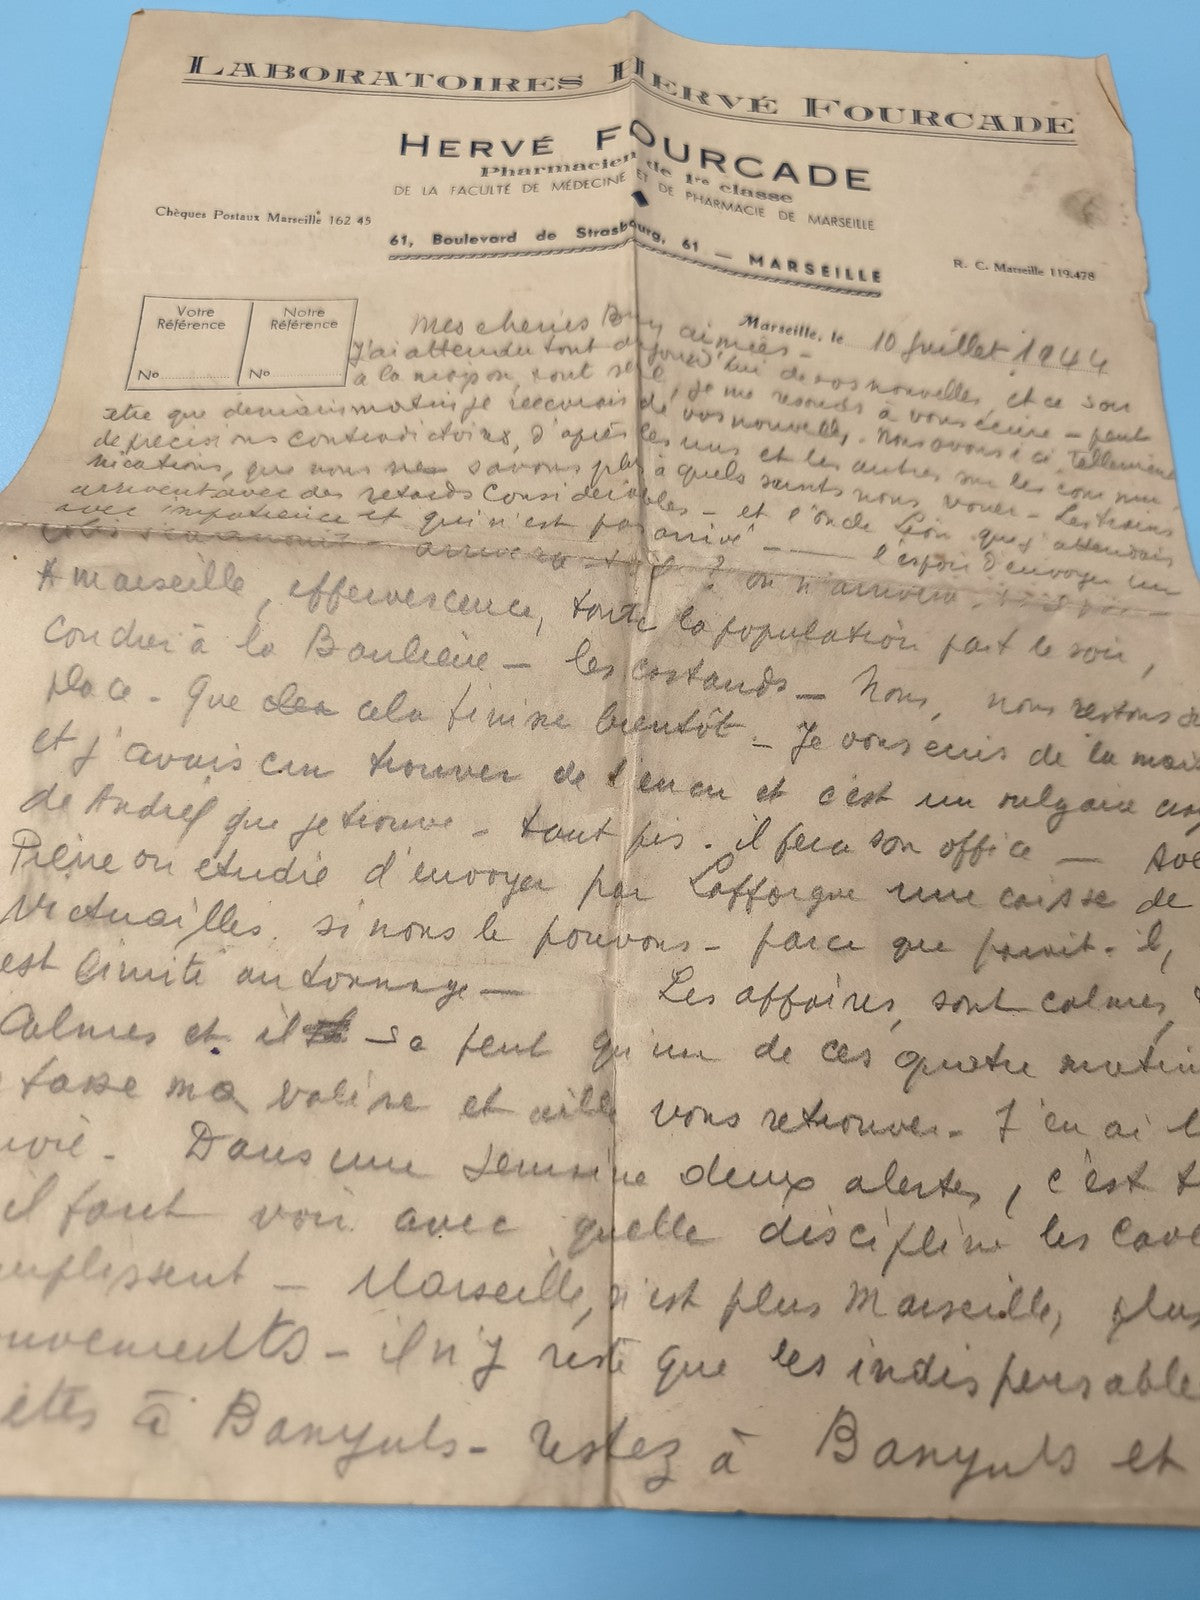 LABORATOIRES HERVÉ FOURCADE
HERVÉ FOURCADE
Pharmacien de 1re classe
DE LA FACULTÉ DE MÉDECINE ET DE PHARMACIE DE MARSEILLE
Chèques Postaux Marseille 162 45
61, Boulevard de Strasbourg, 61 — MARSEILLE
R. C. Marseille 119.478
Votre Référence
No
Notre Référence
No
Marseille, le 10 Juillet 1944
Mes cheries Bien aimées -
J'ai attendu tout aujourd'hui de vos nouvelles, et ce soir
à la maison, tout seul, je me resouds à vous écrire - peut
etre que demain matin je recevrais de vos nouvelles. Nous avons ici tellement
de précisions contradictoires, d'après les uns et les autres sur les commu
nications, que nous ne savons plus à quels saints nous vouer - Les trains
arrivent avec des retards considérables - et l'oncle Léon que j'attendais
avec impatience et qui n'est pas arrivé - l'espoir d'envoyer un
arrivera t-il ? ou n'arrivera
A marseille, effervescence, toute la population part le soir,
coucher à la Banlieue - les costauds - Nous, nous restons
place - Que cela finisse bientôt - Je vous ecris de la
et j'avais cru trouver de l'encre et c'est un vulgaire
de André que je trouve - tant pis. il fera son office -
Pierre on étudie d'envoyer par Lafforgue une caisse de
Victuailles. si nous le pouvons - parce que parait-il,
est limité au tonnage - Les affaires, sont calmes,
Calmes et il se peut qu'un de ces quatre
fasse ma valise et aille vous retrouver - J'en ai
Dans une semaine deux alertes, c'est
il faut voir avec quelle discipline les
Marseille, n'est plus Marseille, plus
il n'y reste que les
à Banyuls - restez à Banyuls et